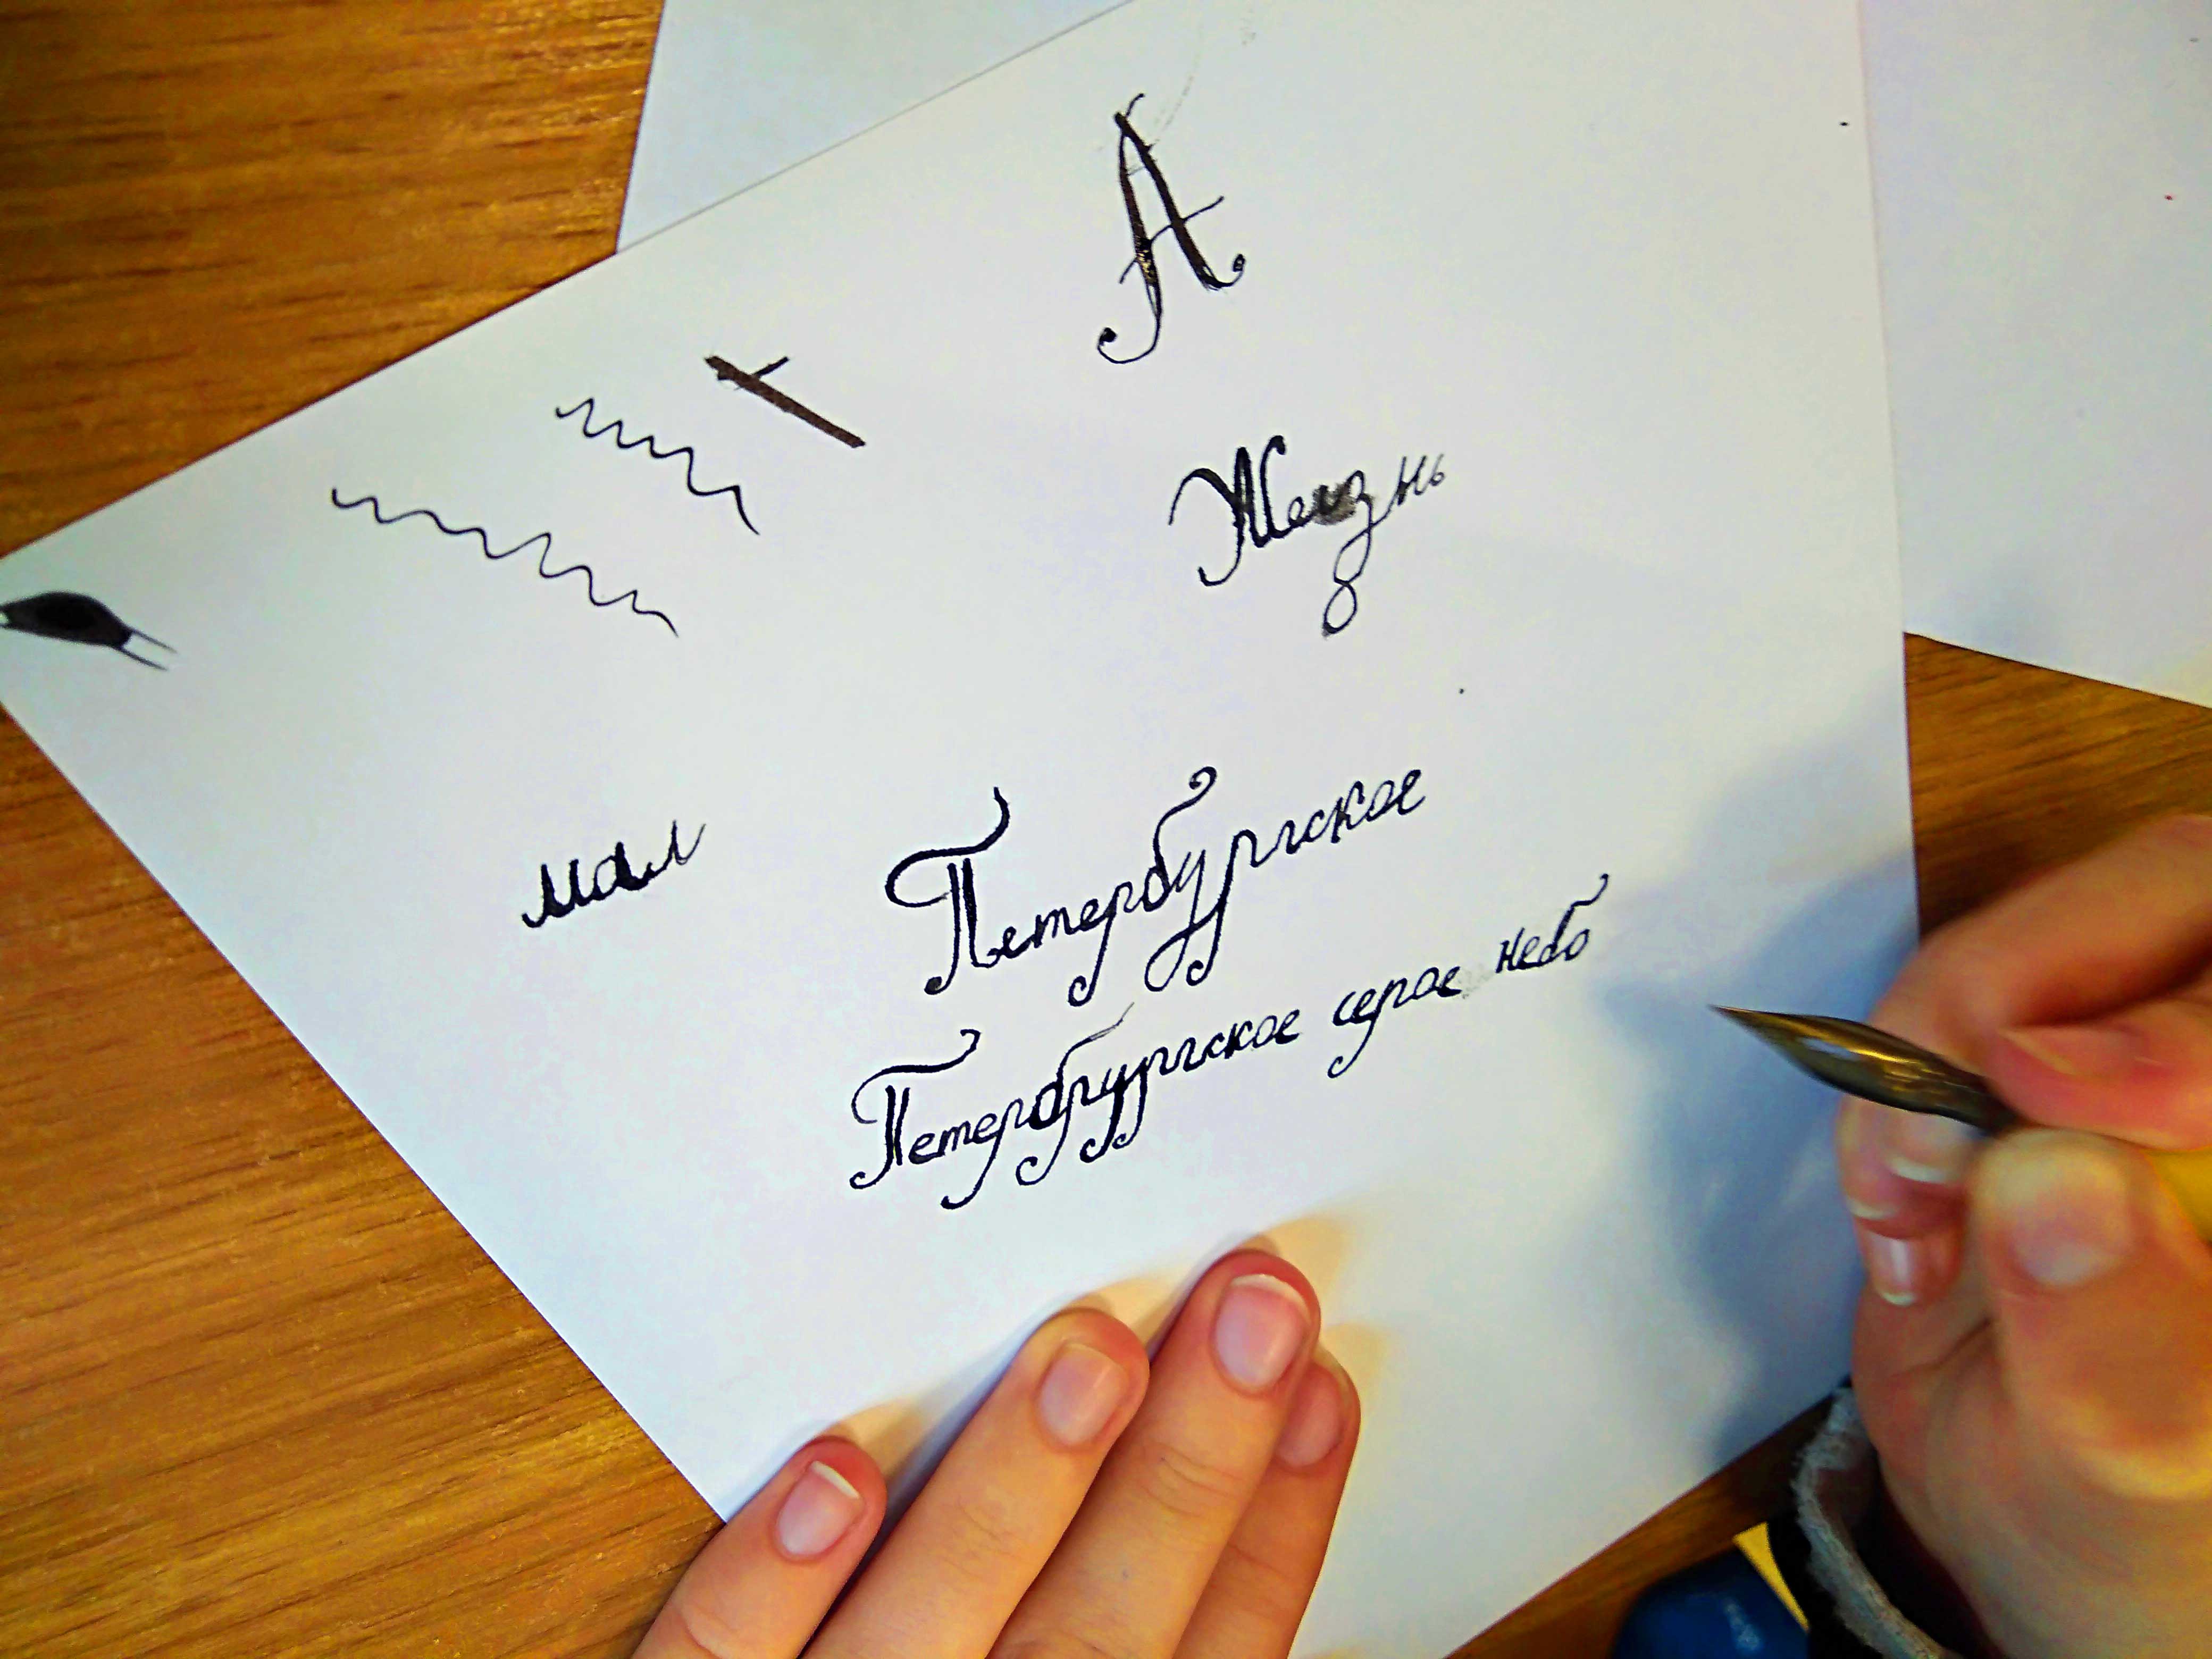 А
Жизнь
мал
Петербургское
Петербрургское серое небо